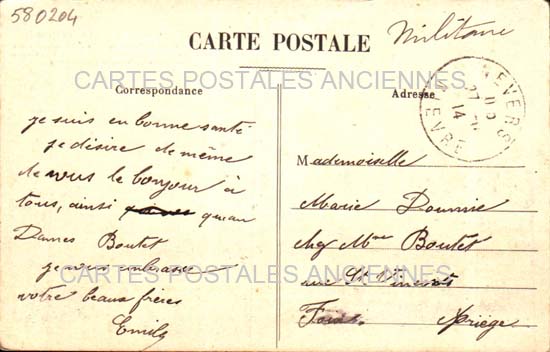 580204
Militaire
CARTE POSTALE
CARTES POSTALES ANCIENNES
Correspondance
Adresse
NEVERS
NIEVRE
14
je suis en bonne santé
je désire de même
de vous le bonjour à
tous, ainsi qu'au
Dames Boutet
je vous embrasse
votre beau frères
Emile
Mademoiselle
Marie Doumic
chez Mme Boutet
rue St Vincent
Foix Ariège
CARTES POSTALES ANCIENNES